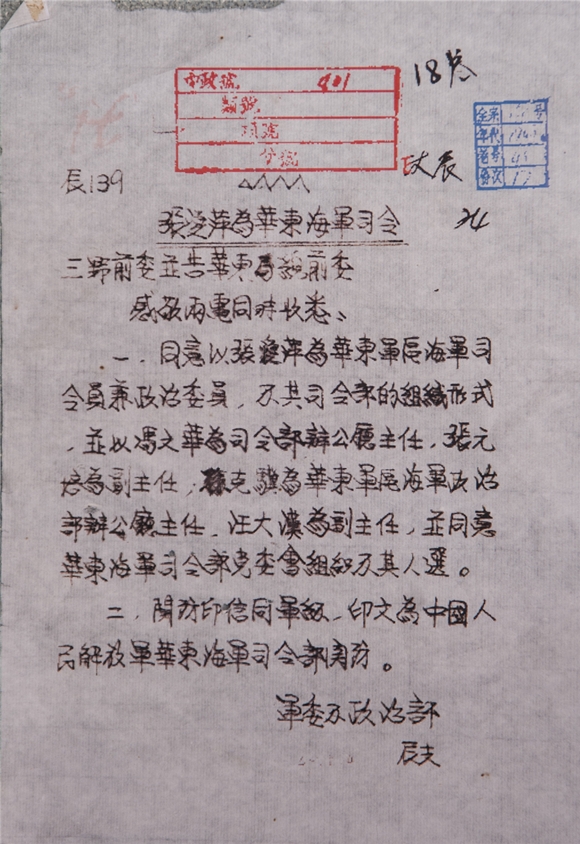 18卷
中政號 401
類號
項號
分號
全宗 号
年代
卷号
件次
辰139
張爱萍為華東海軍司令
24
三野前委並告華東局總前委
感敬两電同時收悉、
一、同意以張爱萍為華東軍區海軍司
令員兼政治委員,及其司令部的組織形式
,並以馮文華為司令部辦公廳主任,張元
培為副主任;孫克驥為華東軍區海軍政治
部辦公廳主任,汪大漢為副主任,並同意
華東海軍司令部党委會組織及其人選。
二、関防印信同軍級,印文為中國人
民解放軍華東海軍司令部関防。
軍委及政治部
辰支